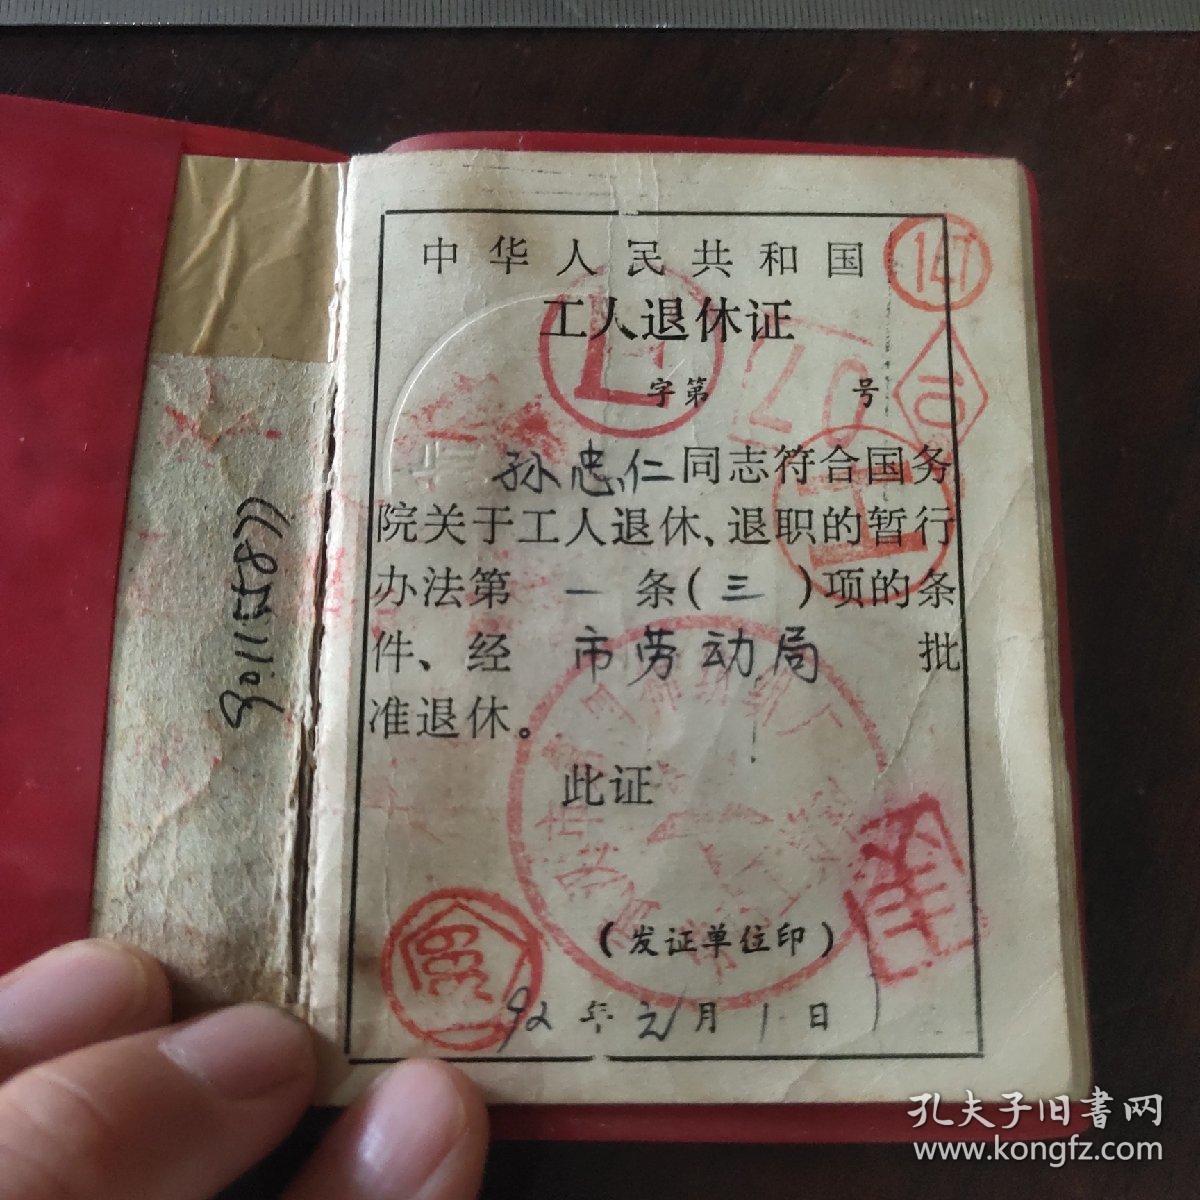 中华人民共和国
工人退休证
字第 号
孙忠仁同志符合国务
院关于工人退休、退职的暂行
办法第 一 条(三)项的条
件、经 市劳动局 批
准退休。
此证
(发证单位印)
92年元月1日
147
孔夫子旧書网
www.kongfz.com